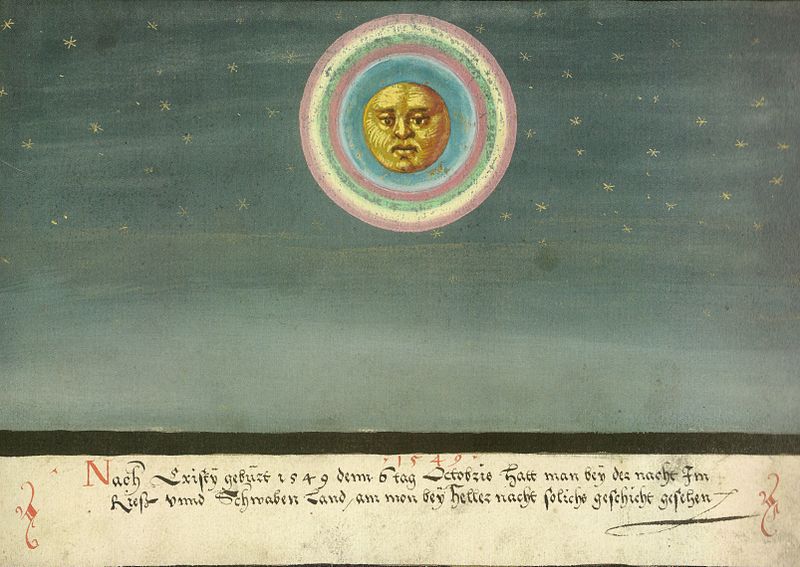 ·1549·
Nach Cristy geburt 1549 denn 6 tag Octobris hatt man bey der nacht Im
Rieß vnnd Schwaben Land / am mon bey heller nacht solichs geschicht gesehen